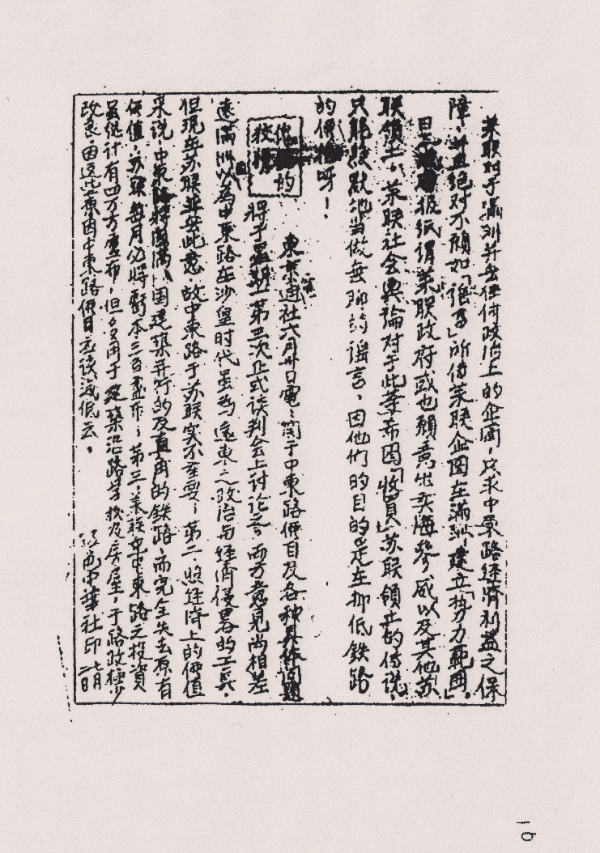 苏联对于满洲并无任何政治上的企图，只求中东路经济利益之保
障，并且绝对不愿如「谣言」所传苏联企图在满洲建立「势力范围」。
日 报纸谓苏联政府或也愿意出卖海参威以及其他苏
联领土，苏联社会舆论对于此等希图「收买」苏联领土的传说，
只能默默地当做无聊的谣言，因他们的目的是在抑低铁路
的价格呀！
他们的
东京通社六月卅日电：关于中东路价目及各种具体问题
将于星期一第三次正式谈判会上讨论云。两方意见尚相差
远 满洲以为中东路在沙皇时代虽为远东之政治与经济侵略的工具
但现在苏联并无此意，故中东路于苏联实不重要；第二照经济上的价值
来说，中东路将因满洲国建筑并行的及直角的铁路，而完全失去原有
价值，苏联每月必将亏本三百 ；第三，苏联在中东路之投资
虽统计有四万万卢布，但多用于建筑沿路学校及房屋，于路政极少
改良，由这些原因中东路价目应该减低云。
红色中华社印 七月二日
19